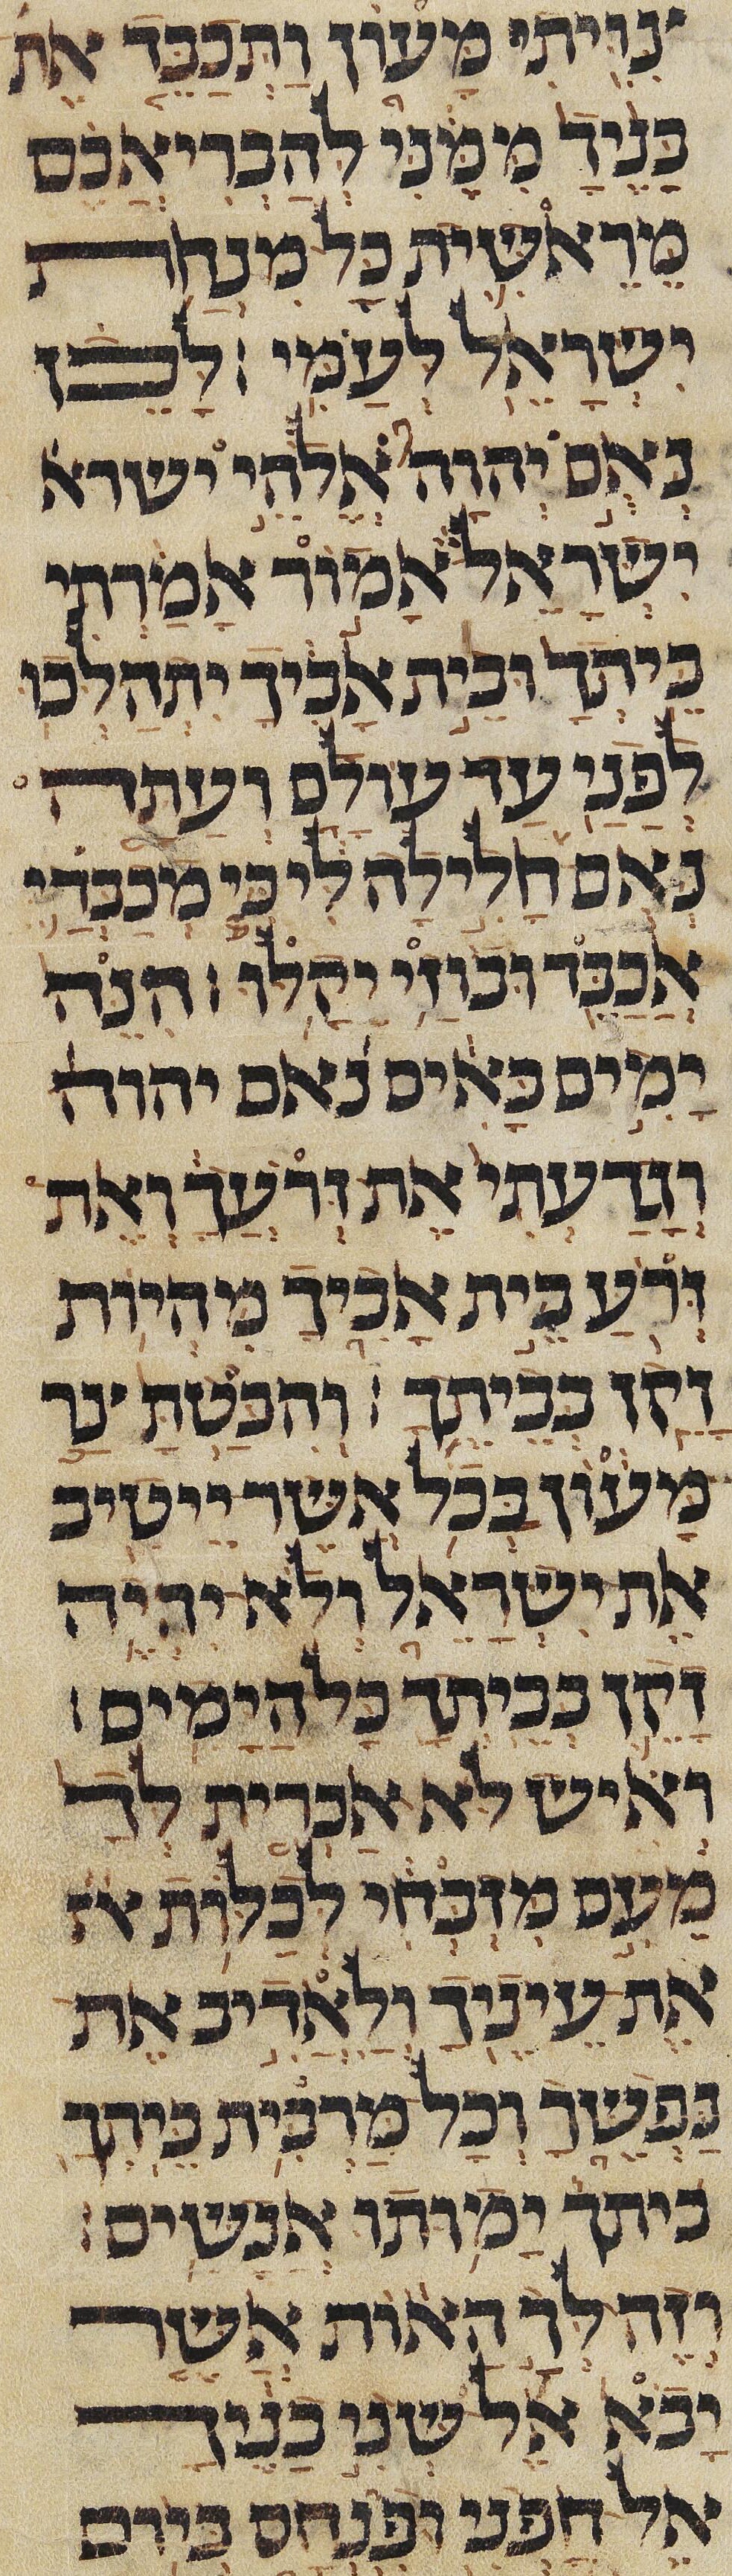 צִוִּיתִי מָעוֹן וַתְּכַבֵּד אֶת
בָּנֶיךָ מִמֶּנִּי לְהַבְרִיאֲכֶם
מֵרֵאשִׁית כָּל מִנְחַת
יִשְׂרָאֵל לְעַמִּי ׃ לָכֵן
נְאֻם יְהוָה אֱלֹהֵי ישרא
יִשְׂרָאֵל אָמוֹר אָמַרְתִּי
בֵּיתְךָ וּבֵית אָבִיךָ יִתְהַלְּכוּ
לְפָנַי עַד עוֹלָם וְעַתָּה
נְאֻם חָלִילָה לִּי כִּי מְכַבְּדַי
אֲכַבֵּד וּבוֹזַי יֵקָלּוּ ׃ הִנֵּה
יָמִים בָּאִים נאם יהוה
וְגָדַעְתִּי אֶת זְרֹעֲךָ וְאֶת
זְרֹעַ בֵּית אָבִיךָ מִהְיוֹת
זָקֵן בְּבֵיתֶךָ ׃ וְהִבַּטְתָּ צַר
מָעוֹן בְּכֹל אֲשֶׁר יֵיטִיב
אֶת יִשְׂרָאֵל וְלֹא יִהְיֶה
זָקֵן בְּבֵיתְךָ כָּל הַיָּמִים ׃
וְאִישׁ לֹא אַכְרִית לְךָ
מֵעִם מִזְבְּחִי לְכַלּוֹת את
אֶת עֵינֶיךָ וְלַאֲדִיב אֶת
נַפְשֶׁךָ וְכָל מַרְבִּית בֵּיתְךָ
ביתך יָמוּתוּ אֲנָשִׁים ׃
וְזֶה לְּךָ הָאוֹת אֲשֶׁר
יָבֹא אֶל שְׁנֵי בָנֶיךָ
אֶל חָפְנִי וּפִנְחָס בְּיוֹם